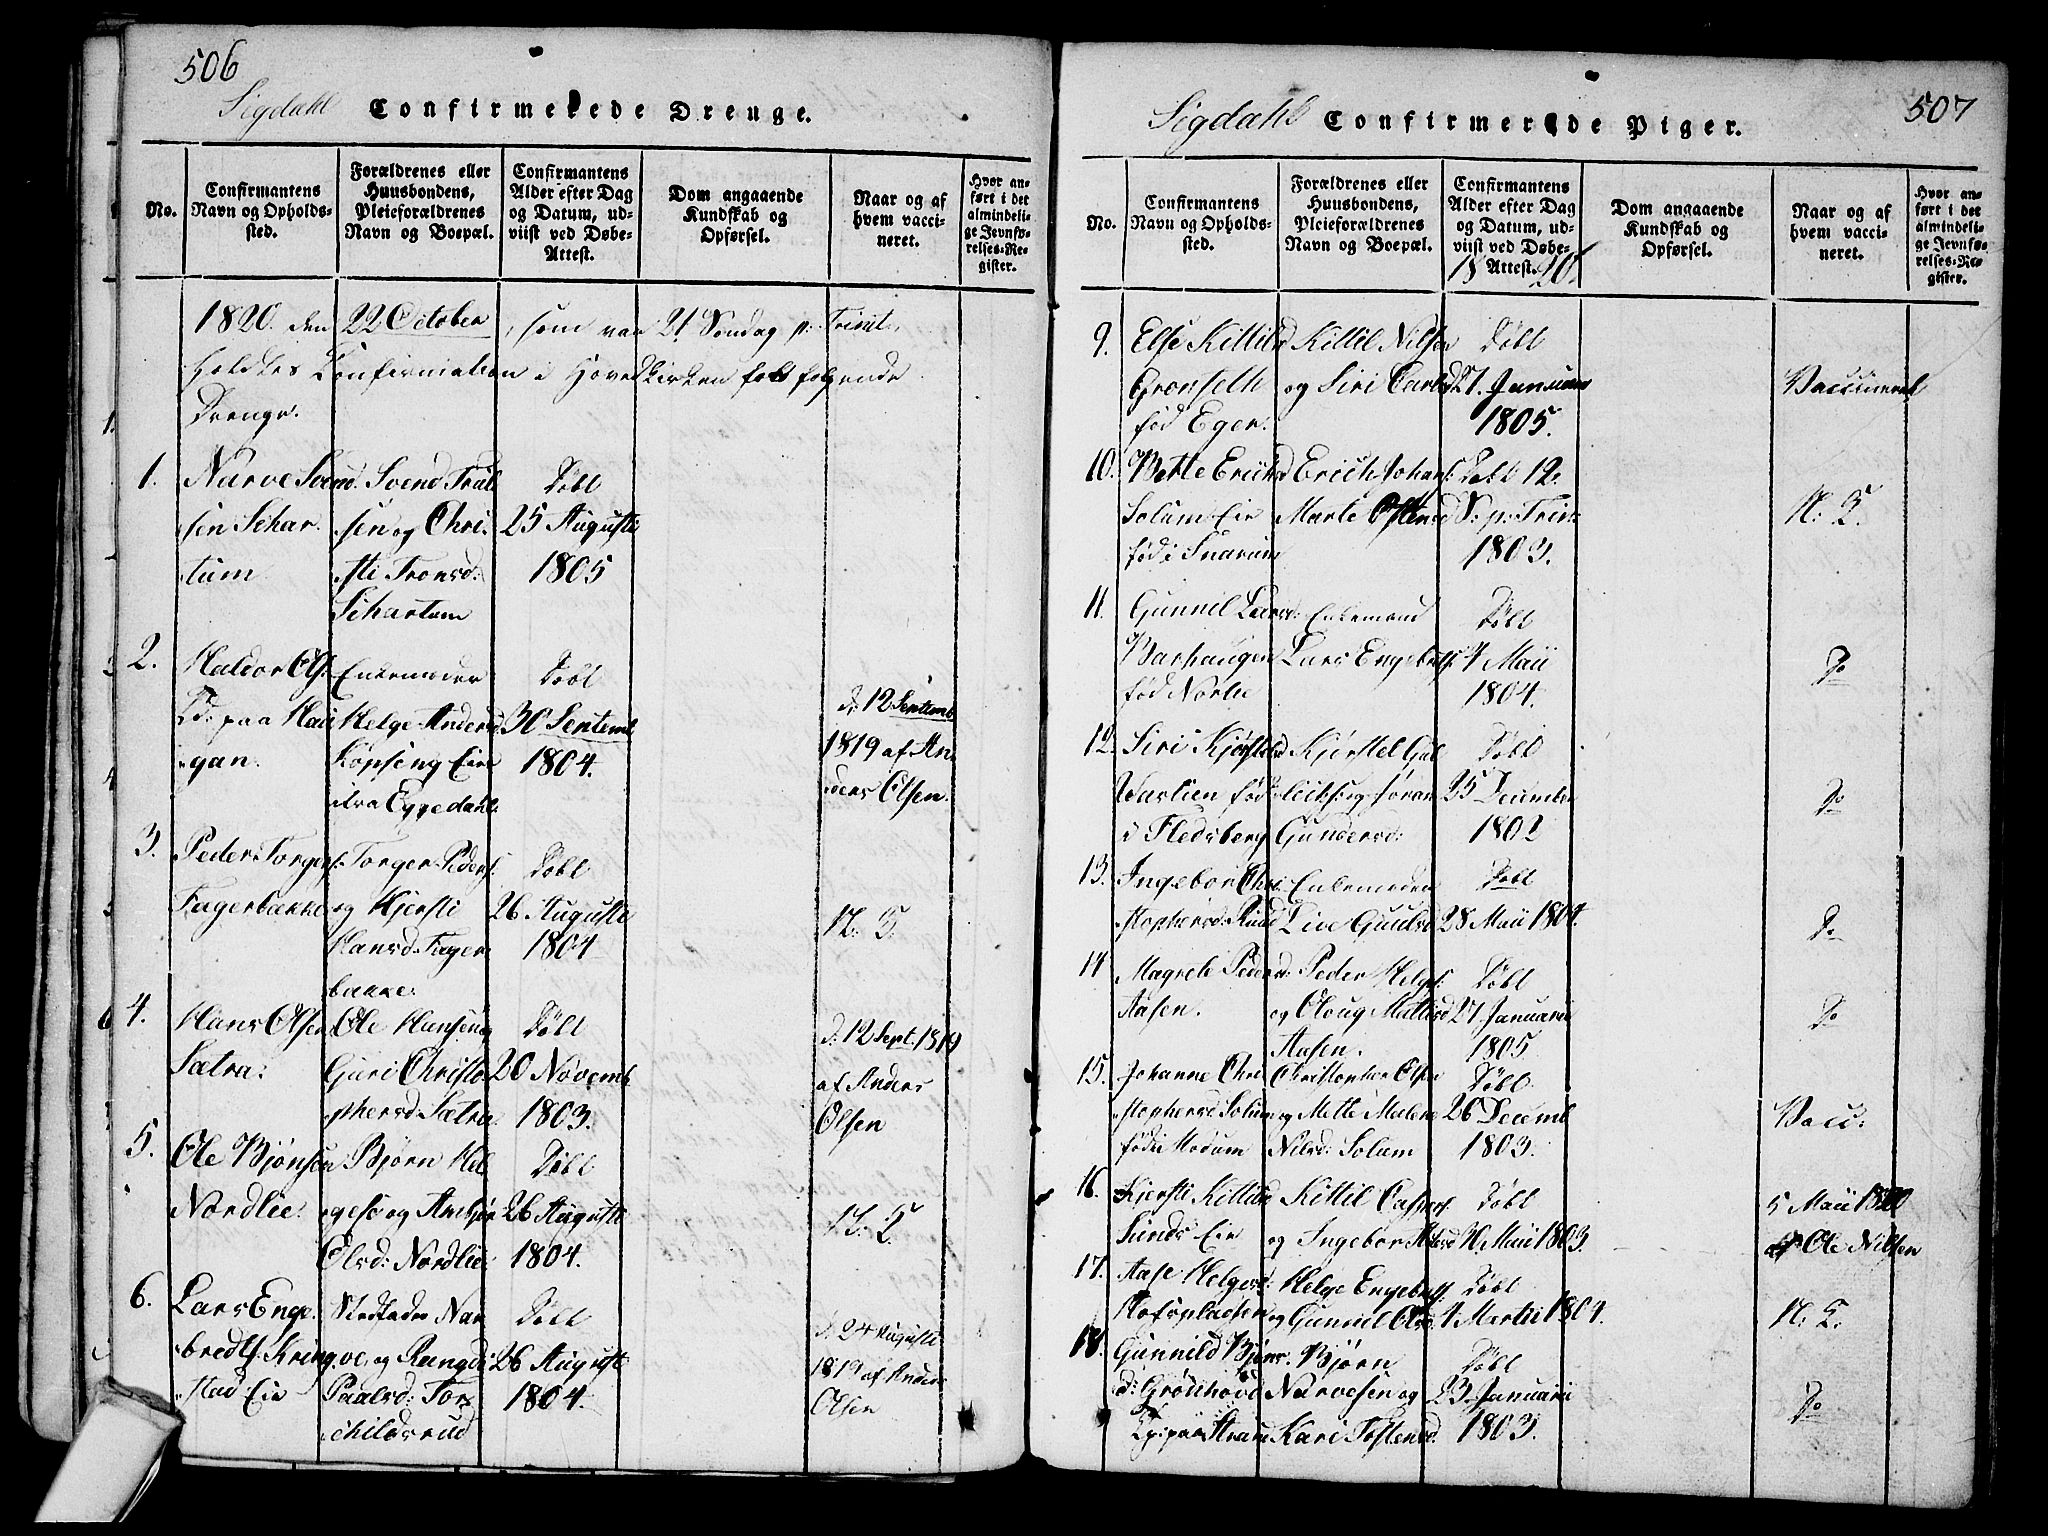 506
Sigdahl Confirmerede Drenge.
No.
Confirmantens
Navn og Opholds-
sted.
Forældrenes eller
Huusbondens,
Pleieforældrenes
Navn og Boepæl.
Confirmantens
Alder efter Dag
og Datum, ud-
viist ved Døbe-
Attest.
Dom angaaende
Kundskab og
Opførsel.
Naar og af
hvem vacci-
neret.
Hvor an-
ført i det
almindeli-
ge Jevnfø-
relses-Re-
gister.
1820. den 22 October, som var 21 Søndag p: Trinit,
holdtes Confirmation i Hovedkirken for følgende
Drenge.
1.
Narve Svend
sen Schar
tum
Svend Trul
sen og Chri
sti Tronsd:
Schartum
Døbt
25 Augusti
1805
2.
Haldor Ols:
Ld: paa Hau
gan.
Enkemoder
Helge Andersd
Kopseng Eie
fra Eggedahl
Døbt
30 Septemb
1804.
d: 12 Septemb
1819 af An
ders Olsen.
3.
Peder Torgers:
Fagerbække
Torger Peders:
og Kjersti
Hansd: Fager
bække.
Døbt
26 Augusti
1804
N: 5:
4.
Hans Olsen
Sætra:
Ole Hansen og
Guri Christo
phersd: Sætra
Døbt
20 Novemb
1803.
d: 12 Sept: 1819
af Anders
Olsen
5.
Ole Bjønsen
Nordlie.
Bjørn Hel
gesø og Anbjør
Olsd: Nordlie
Døbt
26 Augusti
1804.
N: 5.
6.
Lars Enge
bredts: Kring
stad Eie
Stedfader Nar
ve, og Rangdi
Paalsd: Tor
childsrud
Døbt
26 Augusti
1804.
d: 24 Augusti
1819 af Anders
Olsen
507
Sigdahl Confirmerede Piger.
No.
Confirmantens
Navn og Opholds-
sted.
Forældrenes eller
Huusbondens,
Pleieforældrenes
Navn og Boepæl.
Confirmantens
Alder efter Dag
og Datum, ud-
viist ved Døbe-
Attest.
1820
Dom angaaende
Kundskab og
Opførsel.
Naar og af
hvem vacci-
neret.
Hvor an-
ført i det
almindeli-
ge Jevnfø-
relses-Re-
gister.
9.
Else Kittilsd
Grønseth
fød Eger.
Kittil Nilsen
og Siri Carlsd
Døbt
27. Januar
1805.
Vaccineret
10.
Berte Ericksd
Solum Eie
fød i Snarum
Erich Johans:
Marte Ostensd
Døbt 12.
S: p: Trin:
1803.
N: 5.
11.
Gunnil Larsd:
Barhaugen
fød Norlie
Enkemand
Lars Engebrets:
Døbt
4 Maii
1804.
Do
12.
Siri Kjøstelsd
Varlien fød
i Fledsberg
Kjørstel Gul
leiks: og Jøran
Gundersd:
Døbt
25 December
1802
Do
13.
Ingebor Chri
stophersd: Ruud
Enkemoder
Live Guulsd
Døbt
28 Maii 1804.
Do
14
Magrete Pedersd:
Aasen.
Peder Helges:
og Oloug Mattisd
Aasen.
Døbt
27. Januarii
1805
Do
15.
Johanne Chri
stophersd Solum
fød i Modum
Christopher Olsen
og Mette Malene
Nilsd: Solum
Døbt
26 Decemb
1803.
Vacc:
16.
Kjersti Kittilsd
Lunds Eie
Kittil Caspers:
og Ingebor Alsd
Døbt
30 Maii 1803.
5 Maii 1820
af Ole Nilsen
17.
Aase Helgesd:
Hofsplassen
Helge Engebrets:
og Gunnil Olsd
Døbt
4 Martii 1804.
N: 5.
18.
Gunnild Bjøns
d: Grønhovd
Lg: paa Strand
Bjørn
Narvesen og
Kari Tostensd.
Døbt
23 Januarii
1803.
Do